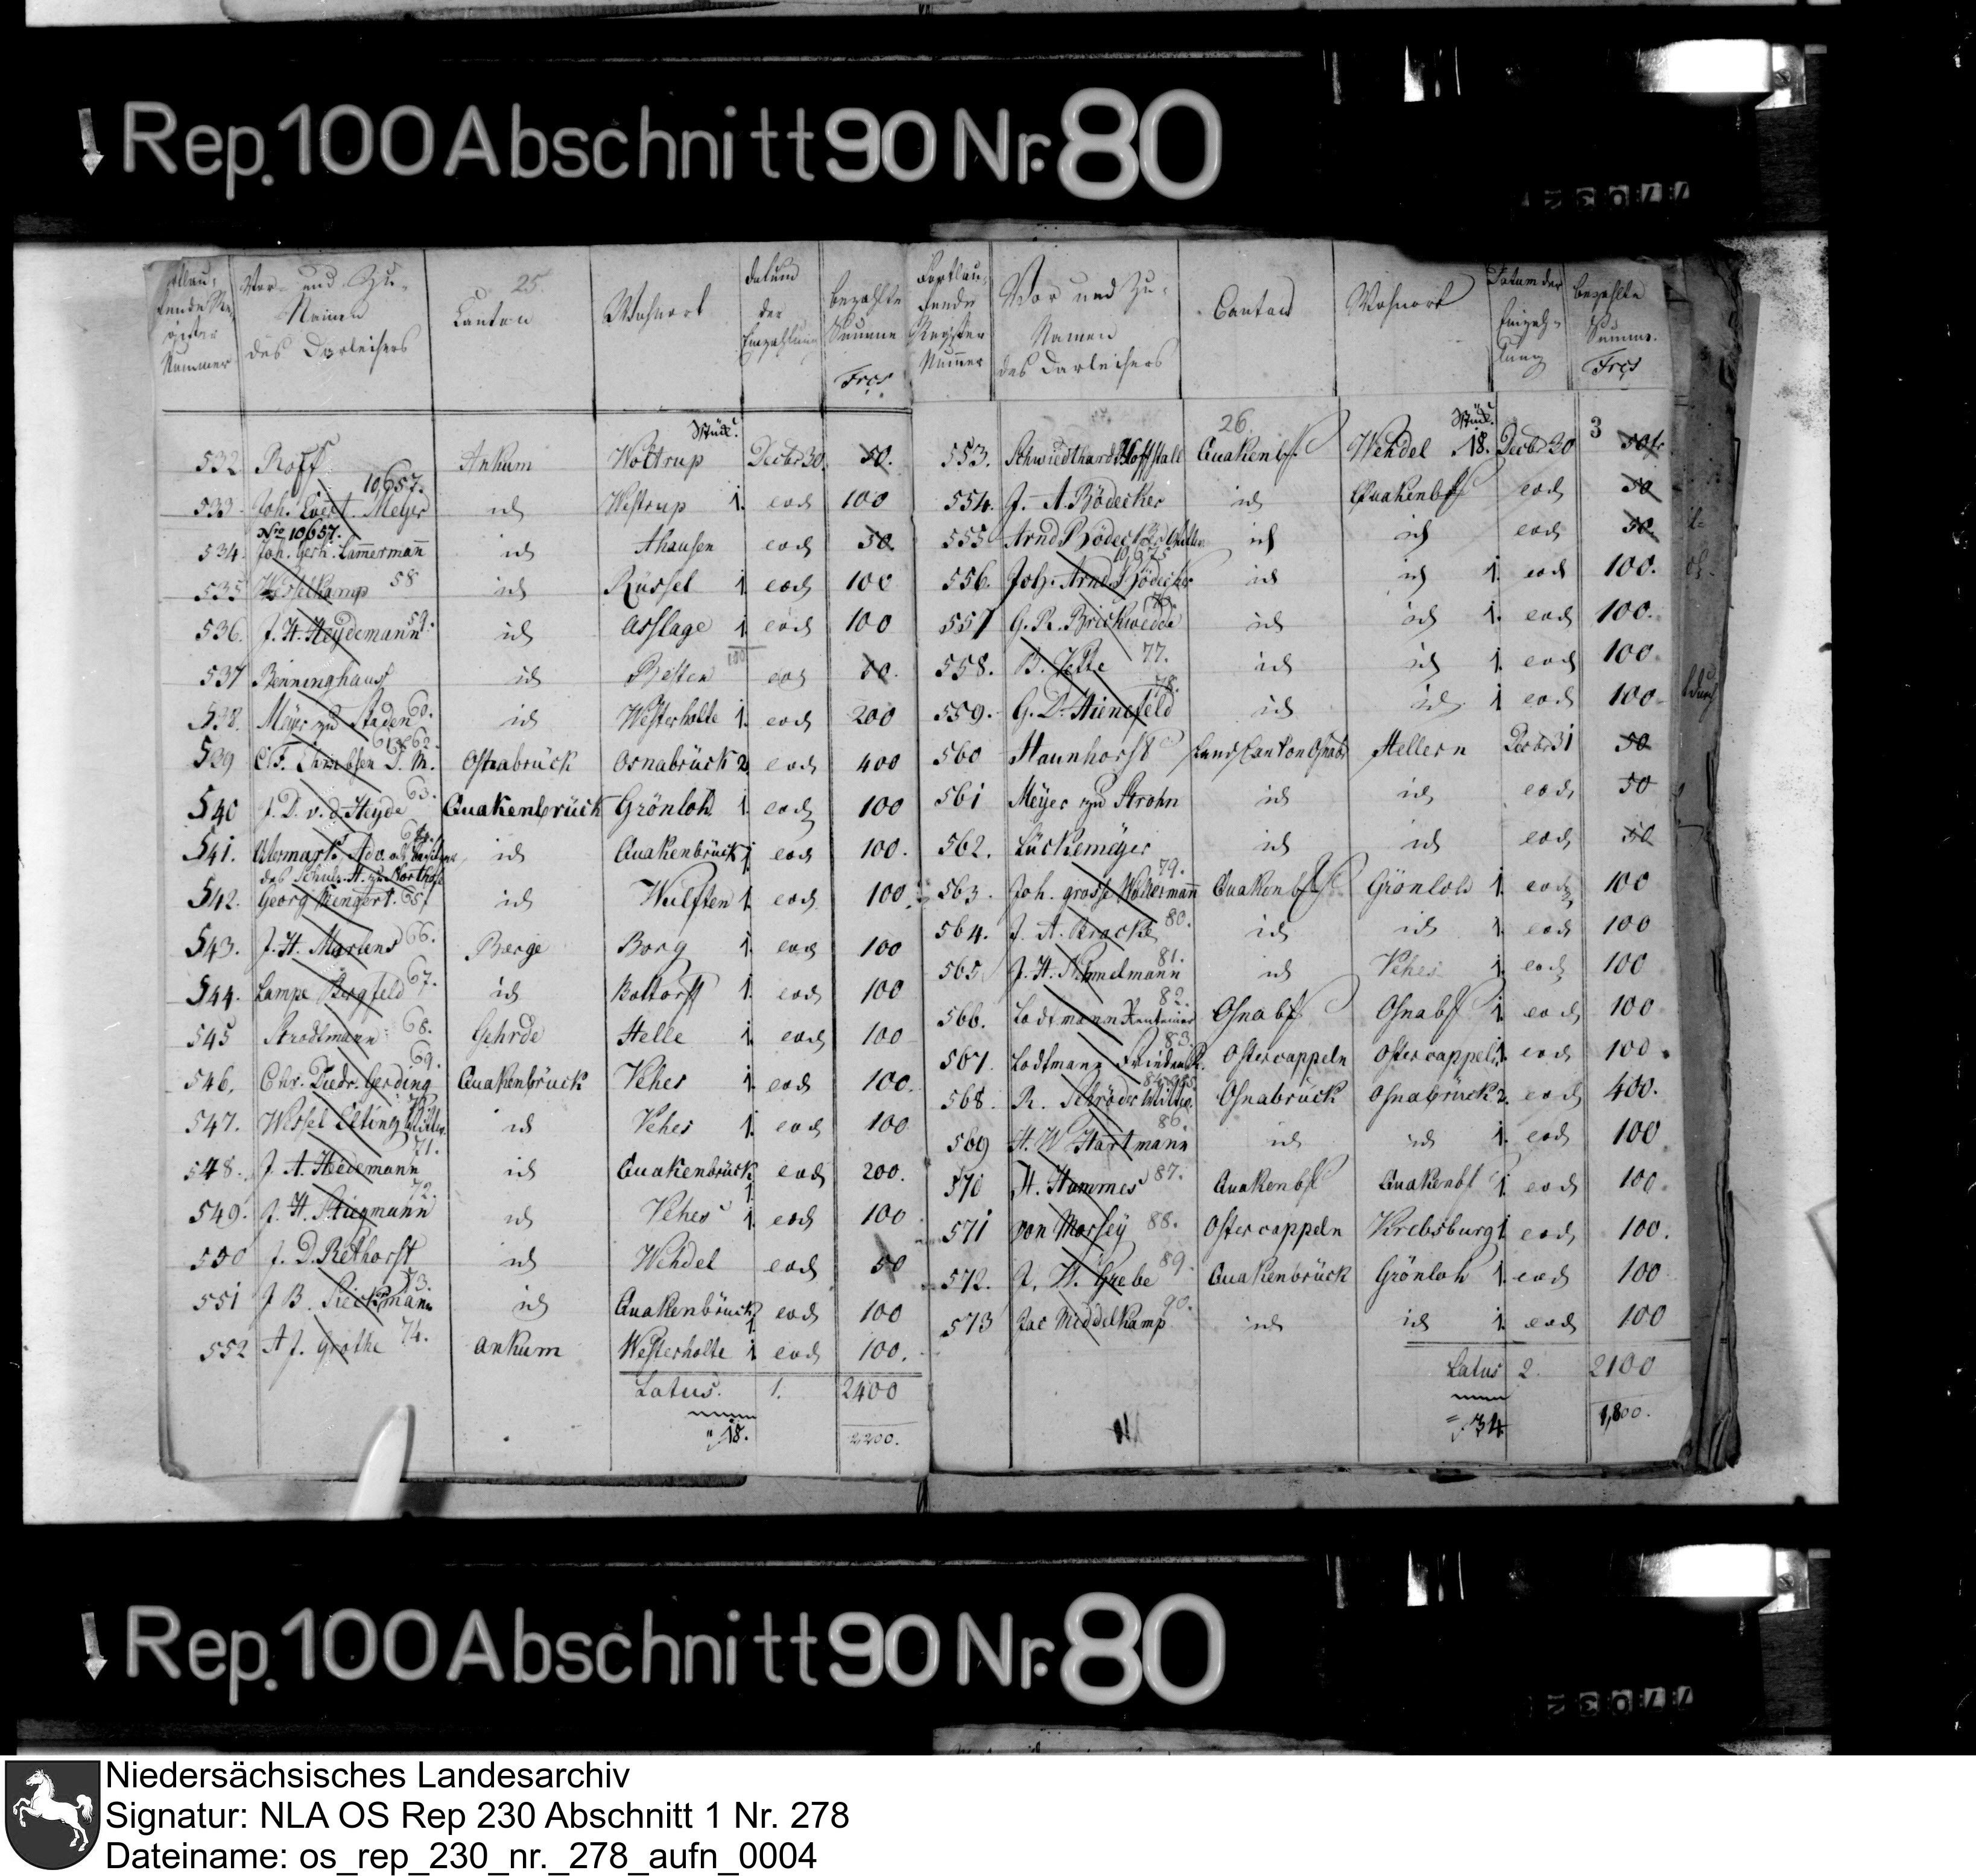 Rep. 100 Abschnitt 90 Nr. 80
25.
Vor- und Zu-
Namen
des Darleihers
Canton
Wohnort
Datum
der
Einzahlung
bezahlte
Summe
Frcs
Nummer
Stück.
532 Roff Ankum Wottrup Decbr 30. 50.
10,657.
533 Joh. Evert Meyer id Westrup 1. eod 100
No 10657.
534 Joh. Gerh. Lam̄ermann id Ahausen eod 50
535 Wesselkamp 58 id Rüssel 1. eod 100
536. J. H. Heydemann 59. id Asslage 1. eod 100
537 Benninghaus id Besten eod 50.
538. Meyer zu Staden 60. id Westerholte 1. eod 200
539 61 & 62. Osnabrück Osnabrück 2. eod 400
540 J. D. v. d. Heyde 63. Quakenbrück Grönloh 1. eod 100
541. 64. id Quakenbrück 1. eod 100.
542. Georg Mengert. 65 id Wulften 1. eod 100
543. J. H. Martens 66. Berge Borg 1. eod 100
544. Lampe Bergfeld 67. id Bottorff 1. eod 100
545 Strodtmann 68. Gehrde Helle 1. eod 100
546. Chr. Diedr. Gerding 69. Quakenbrück Vehes 1. eod 100.
547. Wessel Elting id Vehes 1. eod 100
548. J. A. Heidemann 71. id Quakenbrück 1. eod 200.
549. J. H. Stiegmann 72. id Vehes 1. eod 100
550 J. D. Rethorst id Wehdel eod 50
551 J. B. Sieckmann 73. id Quakenbrück 1. eod 100
552 A. J. Grothe 74. Ankum Westerholte 1. eod 100.
Latus. 1. 2400
18. 2200.
Fortlau-
fende
Register
Nummer
Vor und Zu-
Namen
des Darleihers
Canton
Wohnort
Datum der
Einzah-
lung
bezahlte
Summe.
Frcs
26.
Stück.
3
553. Schwiedthard Hoffstall Quakenb. Wehdel 18. Decbr 30 50 fr
554. J. A. Bödecker id Quakenb. eod 50
555 Arnd Bödecker id id eod 50.
10,675
556. Joh. Arnd Bödecker id id 1. eod 100.
557 G. R. Brickwedde 76. id id 1. eod 100.
558. B. Vette 77. id id 1. eod 100
559. G. D. Hienefeld 78. id id 1 eod 100
560 Haunhorst Land Canton Osnab. Hellern Decbr 31 50
561 Meyer zu Strohn id id eod 50
562. Lückemeyer id id eod 50
563. Joh. grosse Woltermann 79. Quakenb. Grönloh 1. eod 100
564. J. A. Bracke 80. id id 1. eod 100
565 81. id Vehes 1. eod 100
566. Lodtmann Rentmeister 82. Osnab. Osnab. 1. eod 100
567. Lodtmann Friedensr. 83. Ostercappeln Ostercappeln 1. eod 100.
568. R. Schröder Wittwe. 84. 85. Osnabrück Osnabrück 2. eod 400.
569 H. W. Hartmann 86. id id 1. eod 100
570 H. Hammes 87. Quakenb. Quakenb. 1. eod 100.
571 von Morsey 88. Ostercappeln Krebsburg 1 eod 100.
572. J. H. Grebe 89. Quakenbrück Grönloh 1. eod 100
573 Jac Middelkamp 90. id id 1. eod 100
Latus 2. 2100
34 1,800.
Rep. 100 Abschnitt 90 Nr. 80
Niedersächsisches Landesarchiv
Signatur: NLA OS Rep 230 Abschnitt 1 Nr. 278
Dateiname: os_rep_230_nr._278_aufn_0004